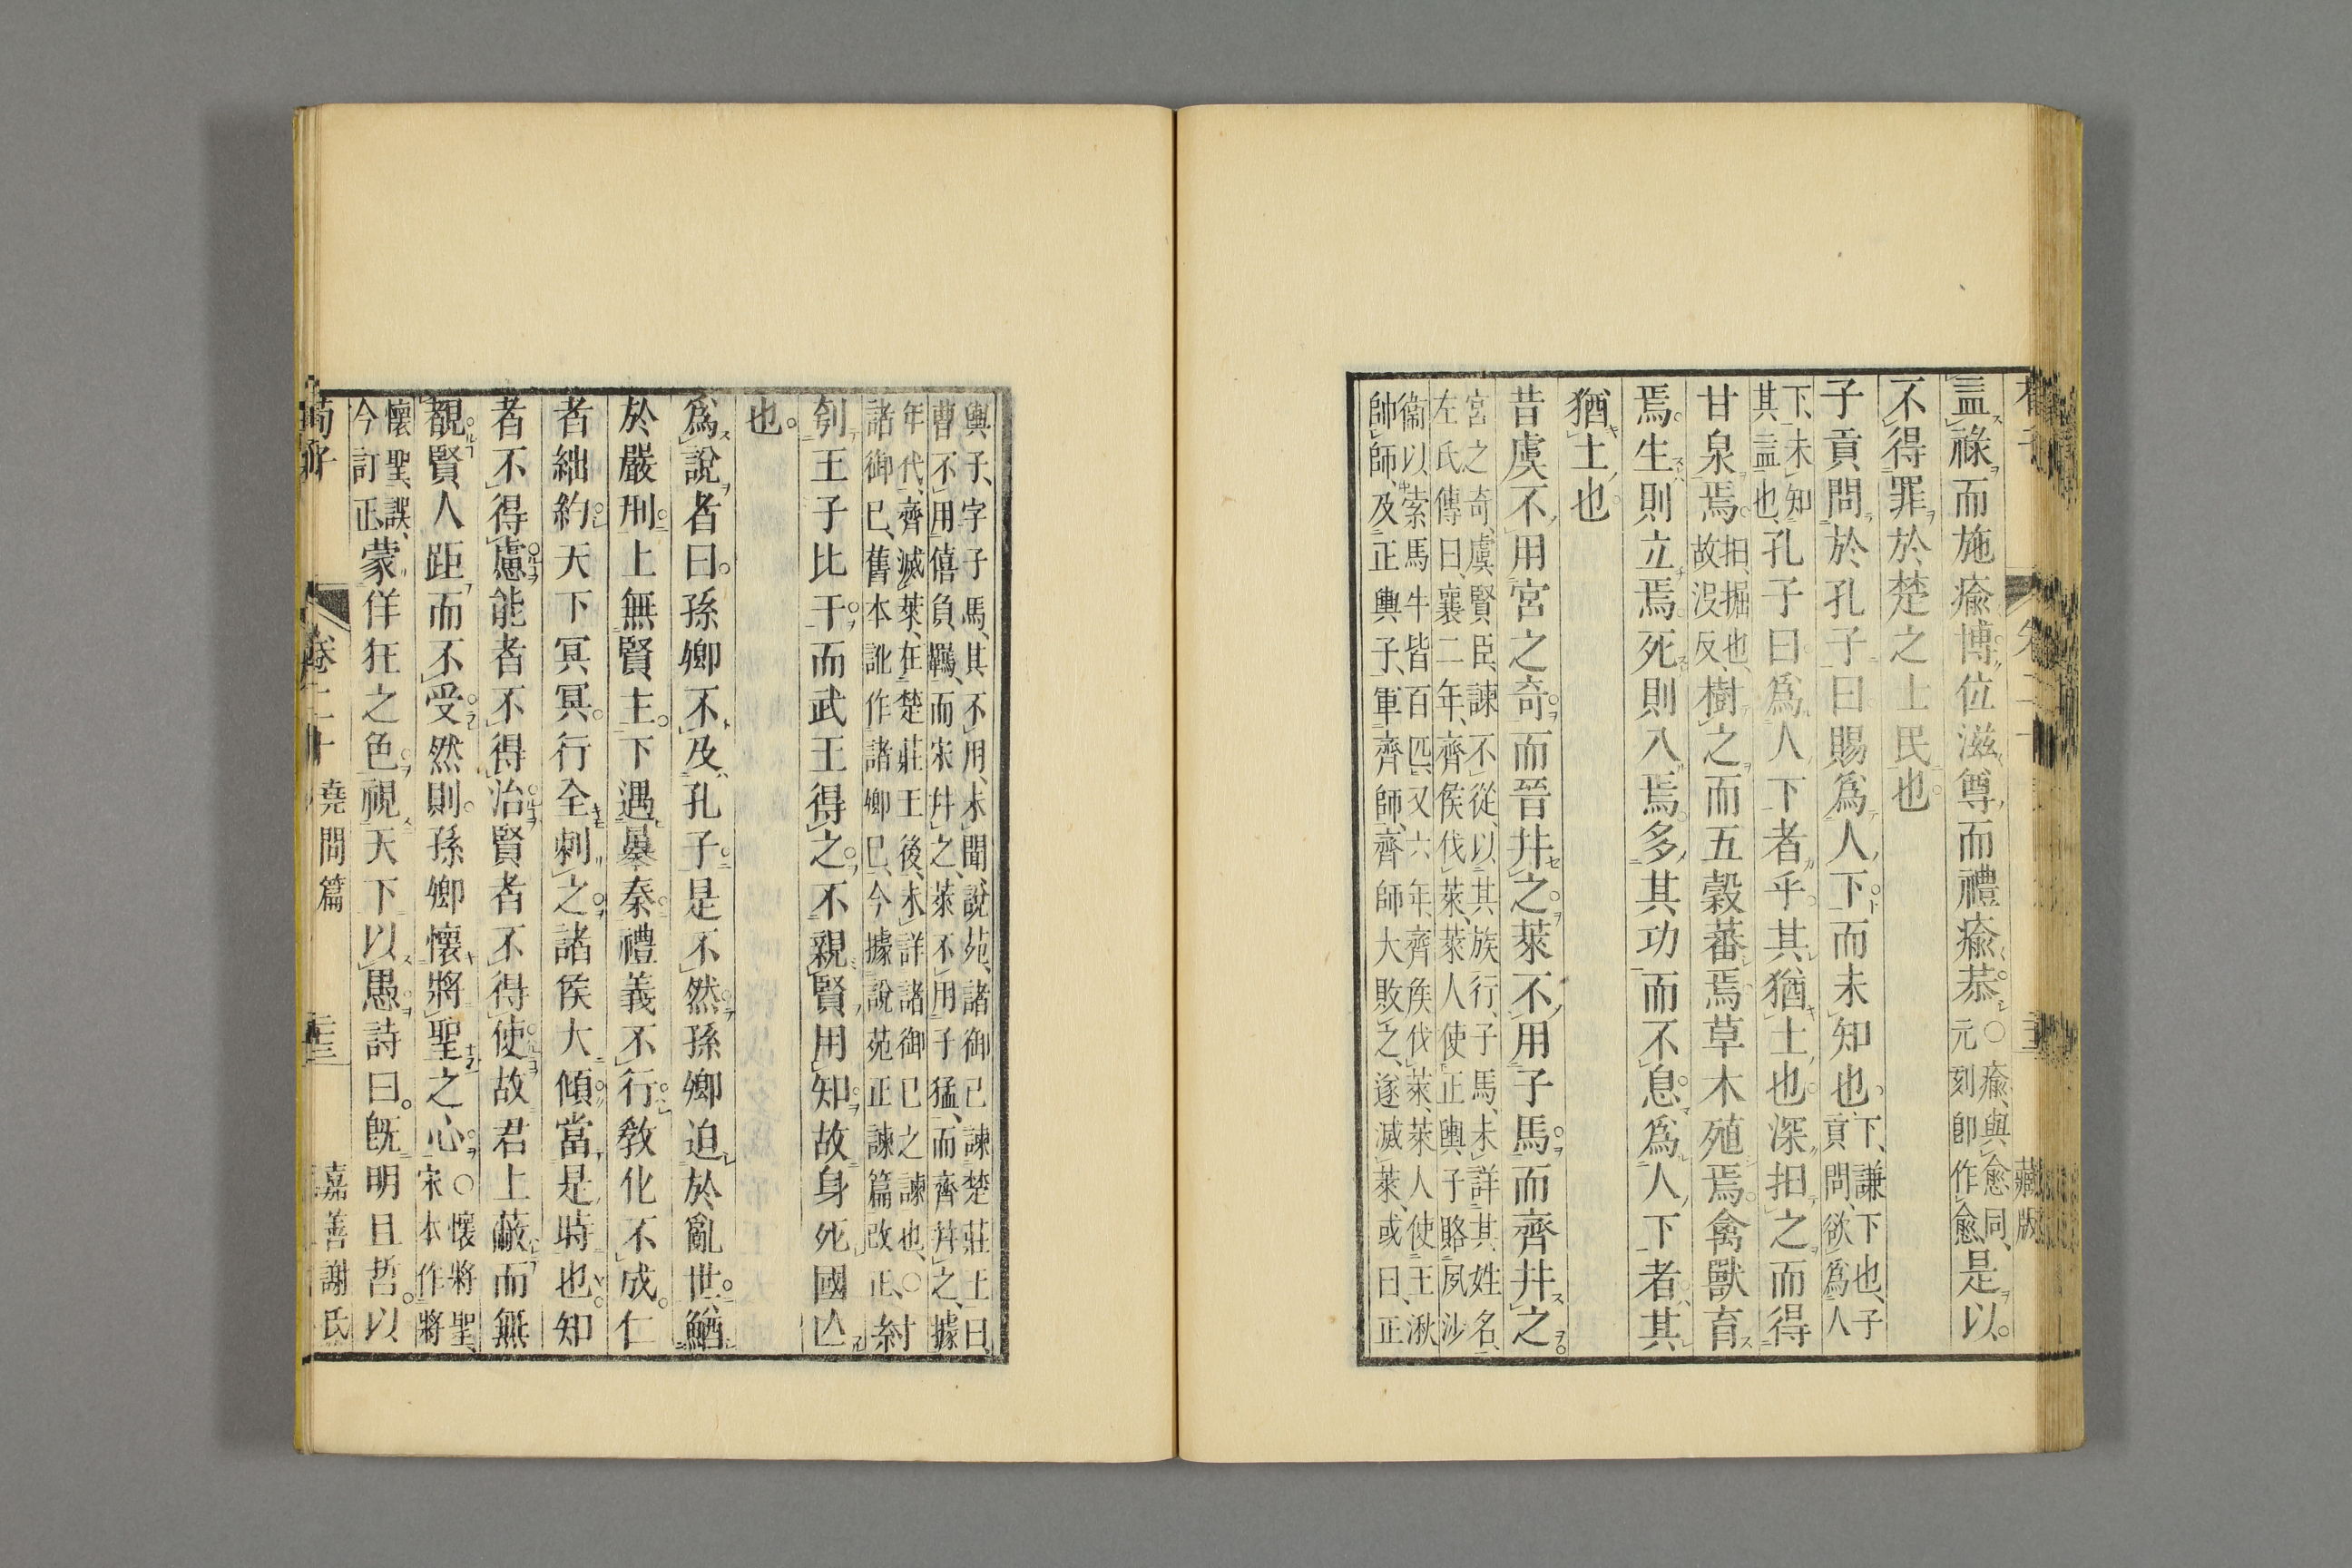 益祿而施瘉博位滋尊而禮瘉恭○瘉與愈同元刻卽作愈是以
不得罪於楚之士民也
子貢問於孔子曰賜爲人下而未知也下謙下也子貢問欲爲人
下未知其益也孔子曰爲人下者乎其猶土也深抇之而得
甘泉焉抇掘也故沒反樹之而五穀蕃焉草木殖焉禽獸育
焉生則立焉死則入焉多其功而不息爲人下者其
猶土也
昔虞不用宮之奇而晉幷之萊不用子馬而齊幷之
宮之奇虞賢臣諫不從以其族行子馬未詳其姓名
左氏傳曰襄二年齊侯伐萊萊人使正輿子賂夙沙
衞以索馬牛皆百匹又六年齊侯伐萊萊人使王湫
帥師及正輿子軍齊師齊師大敗之遂滅萊或曰正
藏版
輿子字子馬其不用未聞說苑諸御已諫楚莊王曰
曹不用僖負羈而宋幷之萊不用子猛而齊幷之據
年代齊滅萊在楚莊王後未詳諸御已之諫也○
諸御已舊本訛作諸卿已今據說苑正諫篇改正紂
刳王子比干而武王得之不親賢用知故身死國亾
也
爲說者曰孫卿不及孔子是不然孫卿迫於亂世鰌
於嚴刑上無賢主下遇暴秦禮義不行敎化不成仁
者絀約天下冥冥行全刺之諸侯大傾當是時也知
者不得慮能者不得治賢者不得使故君上蔽而無
覩賢人距而不受然則孫卿懷將聖之心○懷將聖宋本作將
懷聖誤今訂正蒙佯狂之色視天下以愚詩曰旣明且哲以
荀子 卷二十 堯問篇 二十三 嘉善謝氏